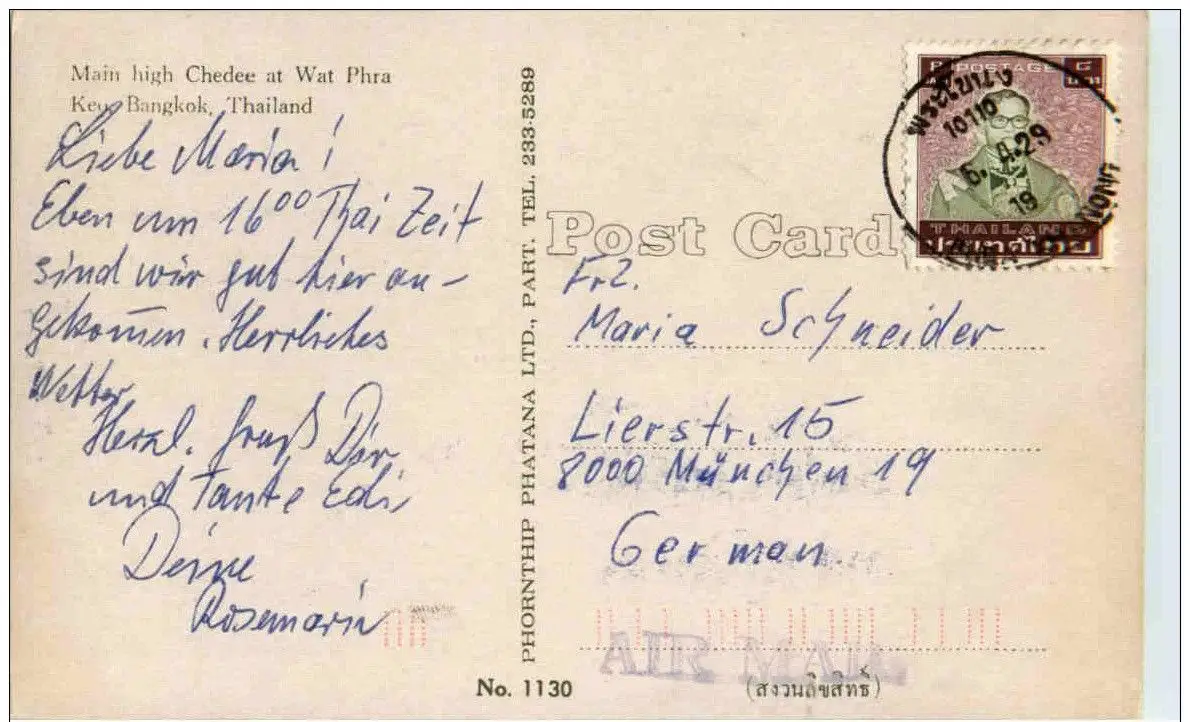 Main high Chedee at Wat Phra
Keo, Bangkok, Thailand
Liebe Maria!
Eben um 16⁰⁰ Thai Zeit
sind wir gut hier an-
gekommen. Herrliches
Wetter
Herzl. Gruß Dir
und Tante Edi,
Deine
Rosemarie
PHORNTHIP PHATANA LTD., PART. TEL. 233-5289
No. 1130
Post Card
POSTAGE
10110
6. 4.29
19
NONG
THAILAND
ประเทศไทย
Frl.
Maria Schneider
Lierstr. 15
8000 München 19
German.
AIR MAIL
(สงวนลิขสิทธิ์)